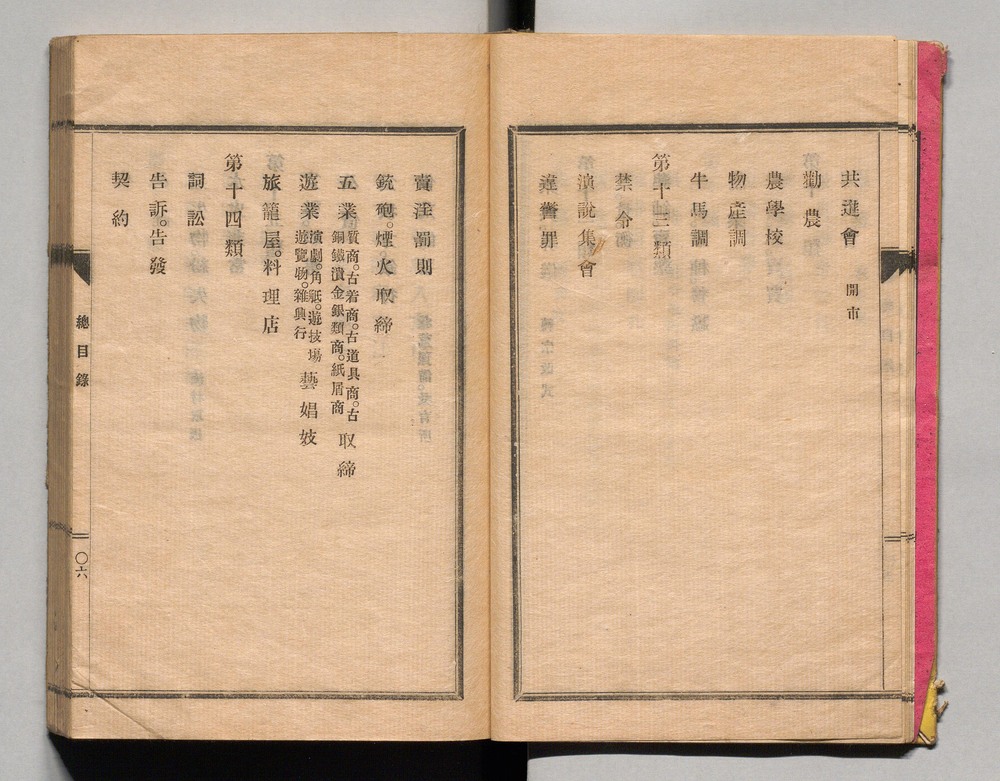 共進會 開市
勸農
農學校
物産調
牛馬調
第十三類
禁令
演說集會
違警罪
賣淫罰則
銃砲。煙火取締
五業質商。古着商。古道具商。古銅鐵潰金銀類商。紙屑商取締
遊業演劇。角觝。遊技場遊覽物。雜興行藝娼妓
旅籠屋。料理店
第十四類
詞訟
告訴。告發
契約
總目錄
〇六